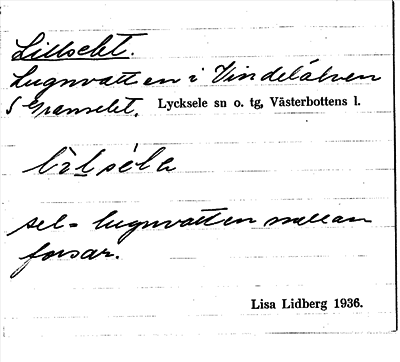 Lillselet.
Lugnvatten i Vindelälven
S Granselet. Lycksele sn o. tg, Västerbottens l.
sel = lugnvatten mellan
forsar.
Lisa Lidberg 1936.